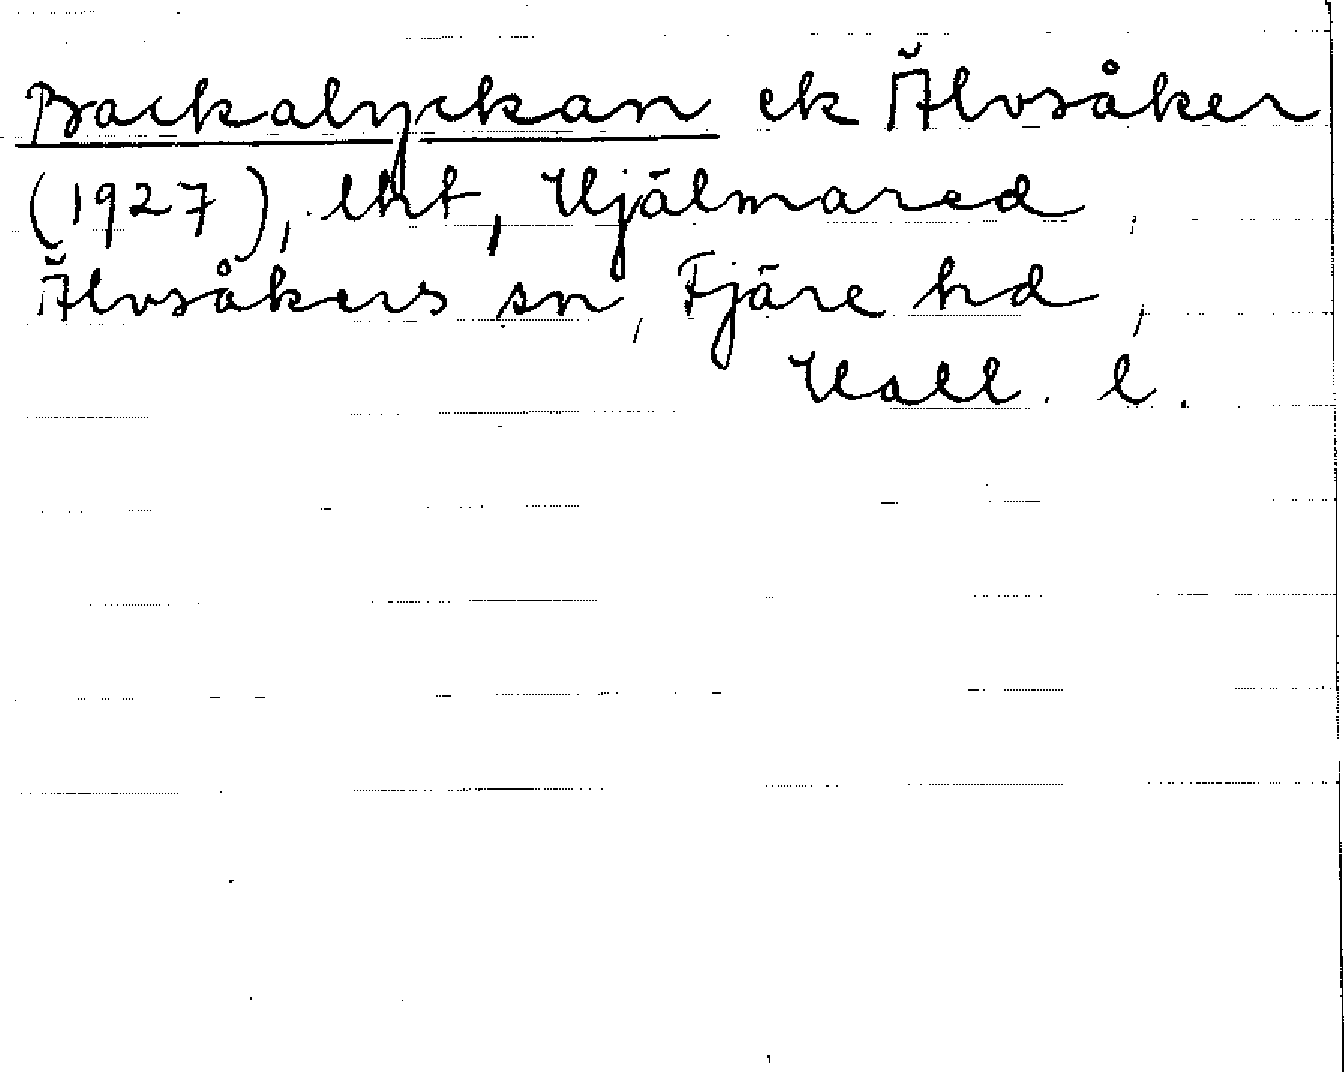 Backalyckan ek Älvsåker
(1927), lht, Hjälmared,
Älvsåkers sn, Fjäre hd,
Hall. l.